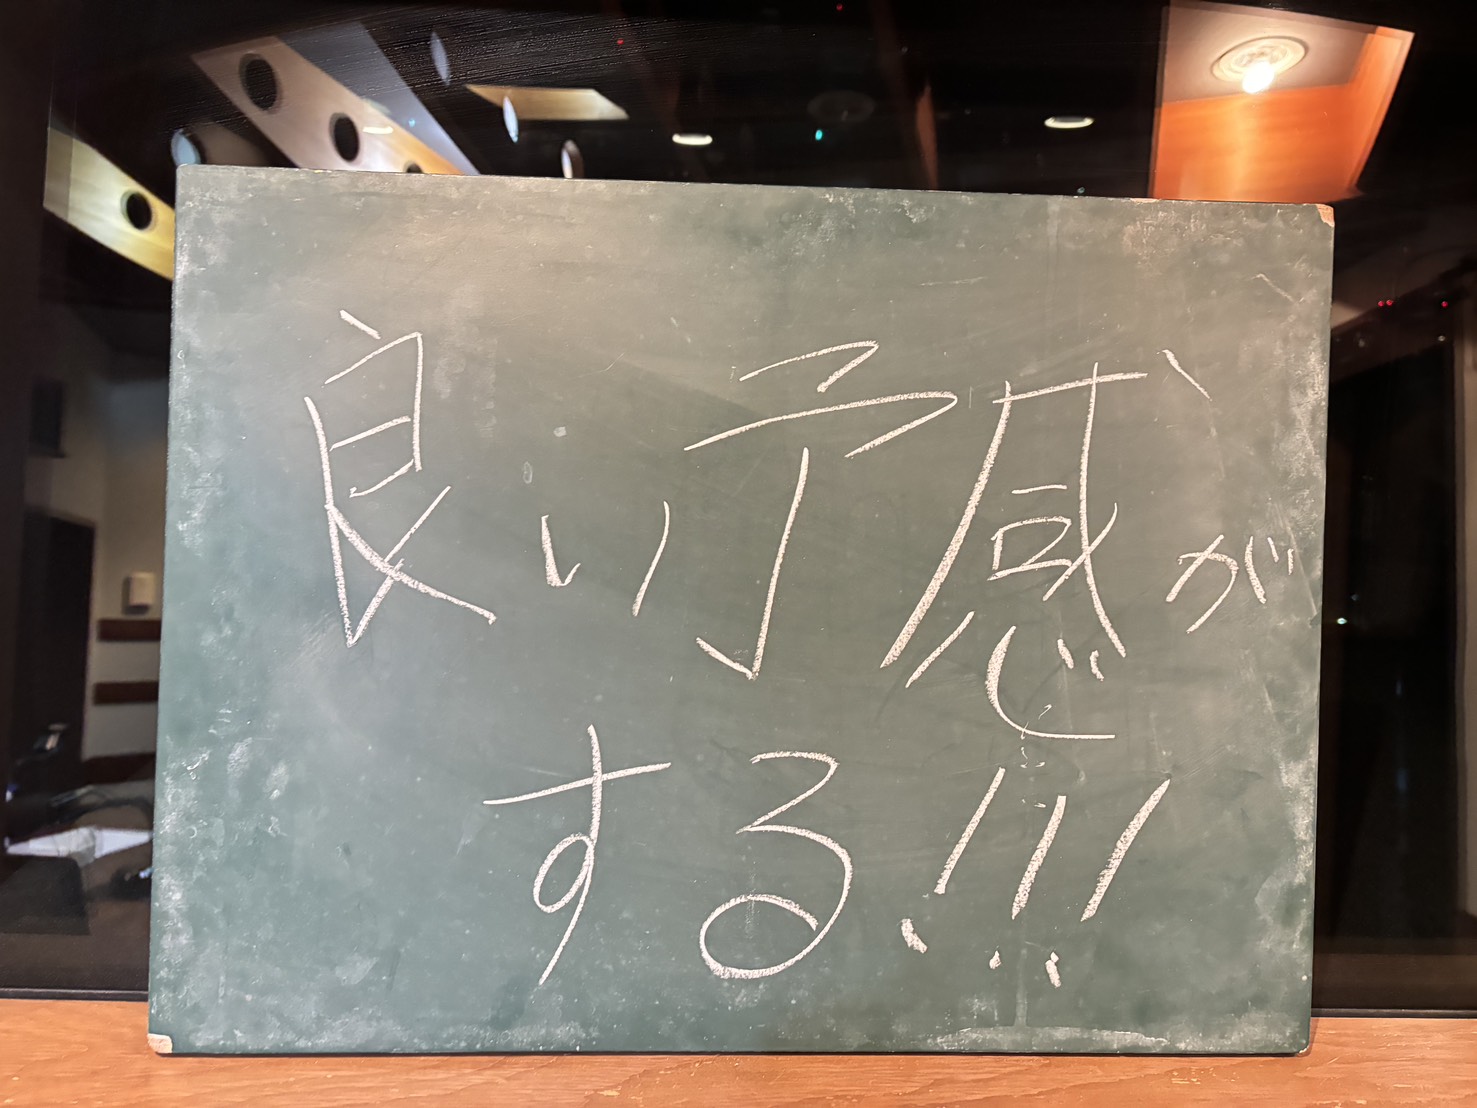 良い予感が
する!!!